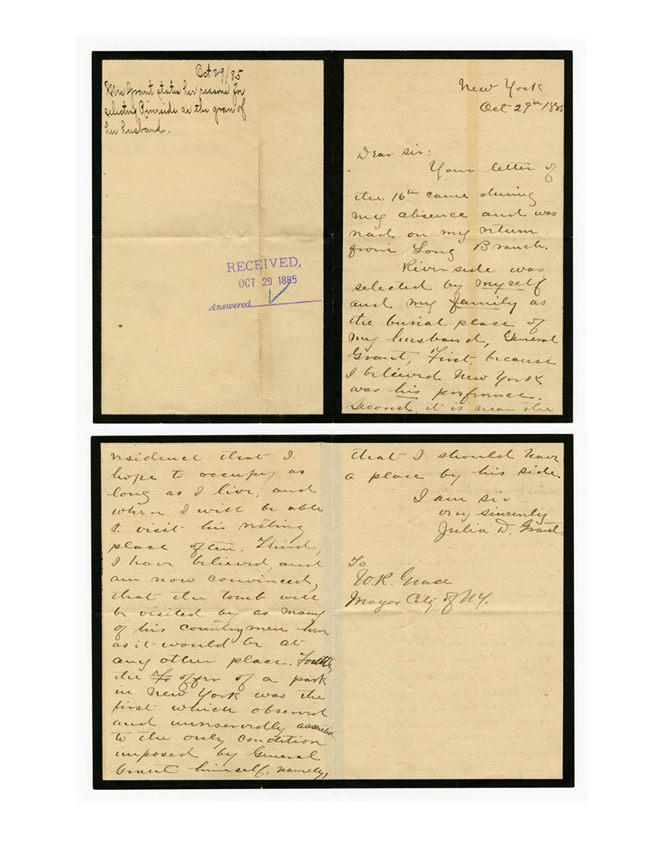 Oct 29/85
Mrs Grant states her reasons for
selecting Riverside as the grave of
her husband.
RECEIVED,
OCT 29 1885
Answered
New York
Oct 29th 1885
Dear Sir:
Your letter of
the 16th came during
my absence and was
read on my return
from Long Branch.
Riverside was
selected by myself
and my family as
the burial place of
my husband, General
Grant, First, because
I believed New York
was his preference.
Second, it is near the
residence that I
hope to occupy as
long as I live, and
where I will be able
to visit his resting
place often. Third,
I have believed, and
am now convinced,
that the tomb will
be visited by as many
of his countrymen here
as it would be at
any other place. Fourth,
the offer of a park
in New York was the
first which observed
and unreservedly assented
to the only condition
imposed by General
Grant himself, namely,
that I should have
a place by his side.
I am sir
very sincerely
Julia D. Grant
To
W.R. Grace
Mayor City of N.Y.